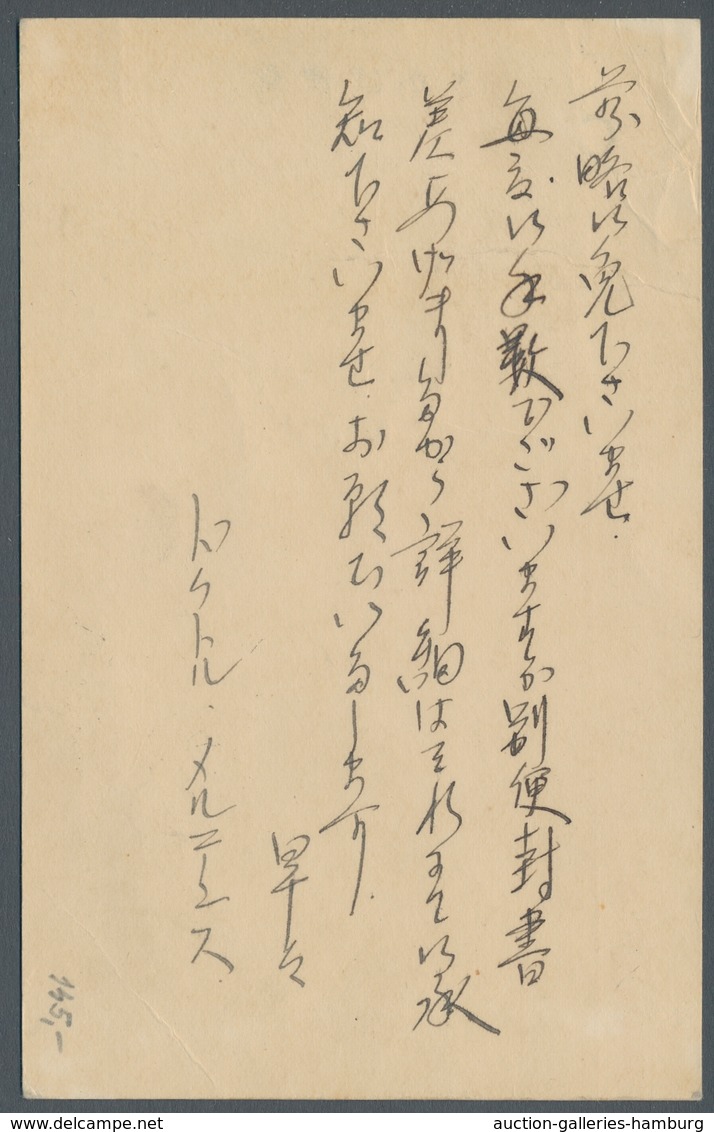 前略御免下さいませ.
毎度御手数でございますが別便封書
差出しましたから詳細はそれにて御承
知下さいませ.お願ひいたします.
早々
ドクトル・メルニース
145,-
auction-galleries-hamburg